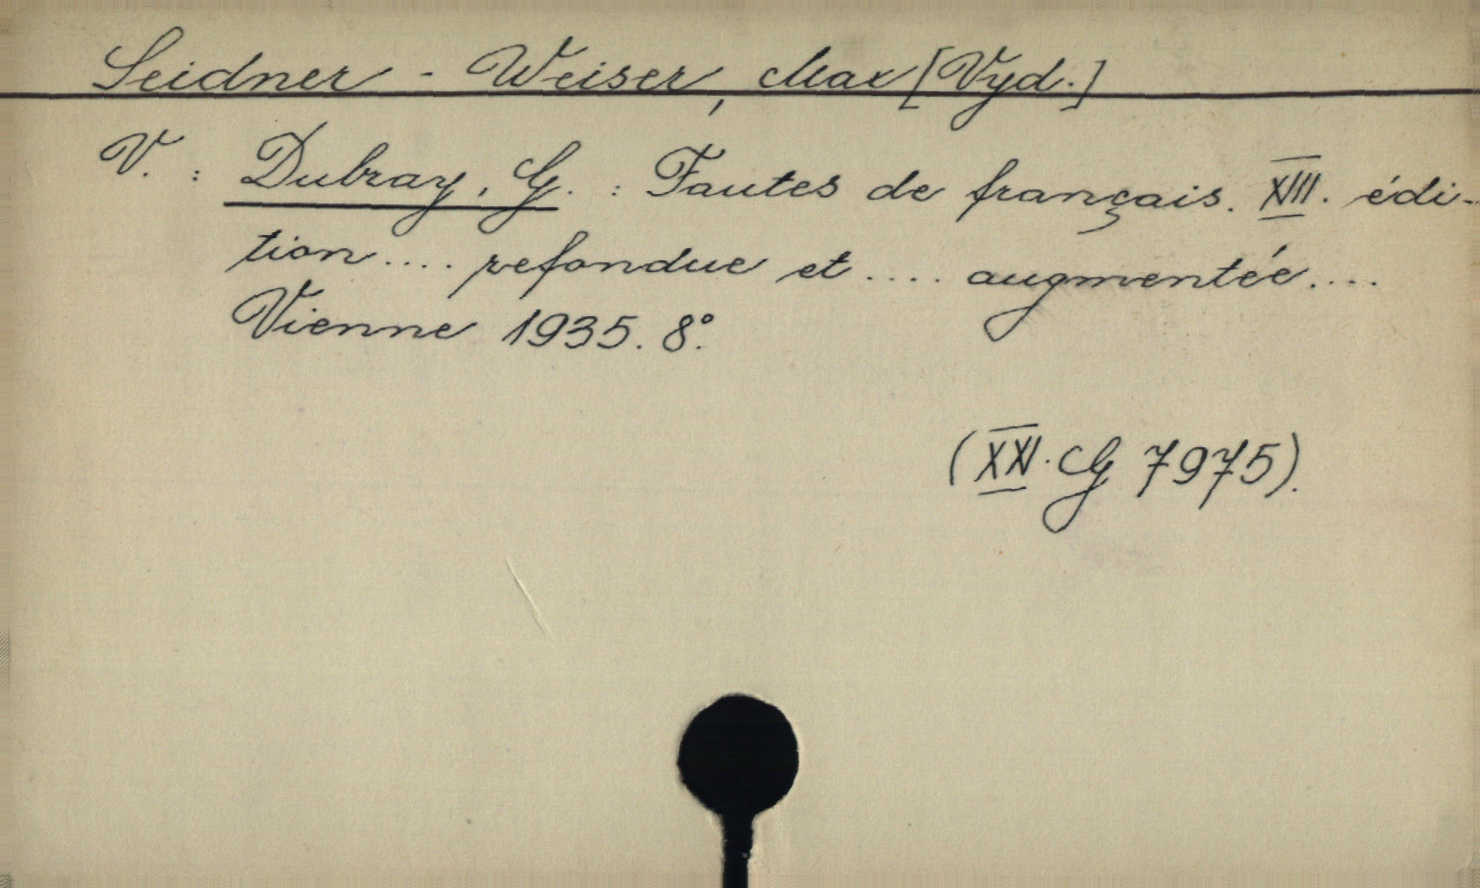 Seidner - Weiser, Max [Vyd.]
V. : Dubray, G. : Fautes de français. XIII. édi-
tion .... refondue et .... augmentée ....
Vienne 1935. 8°.
(XXI. G 7975).